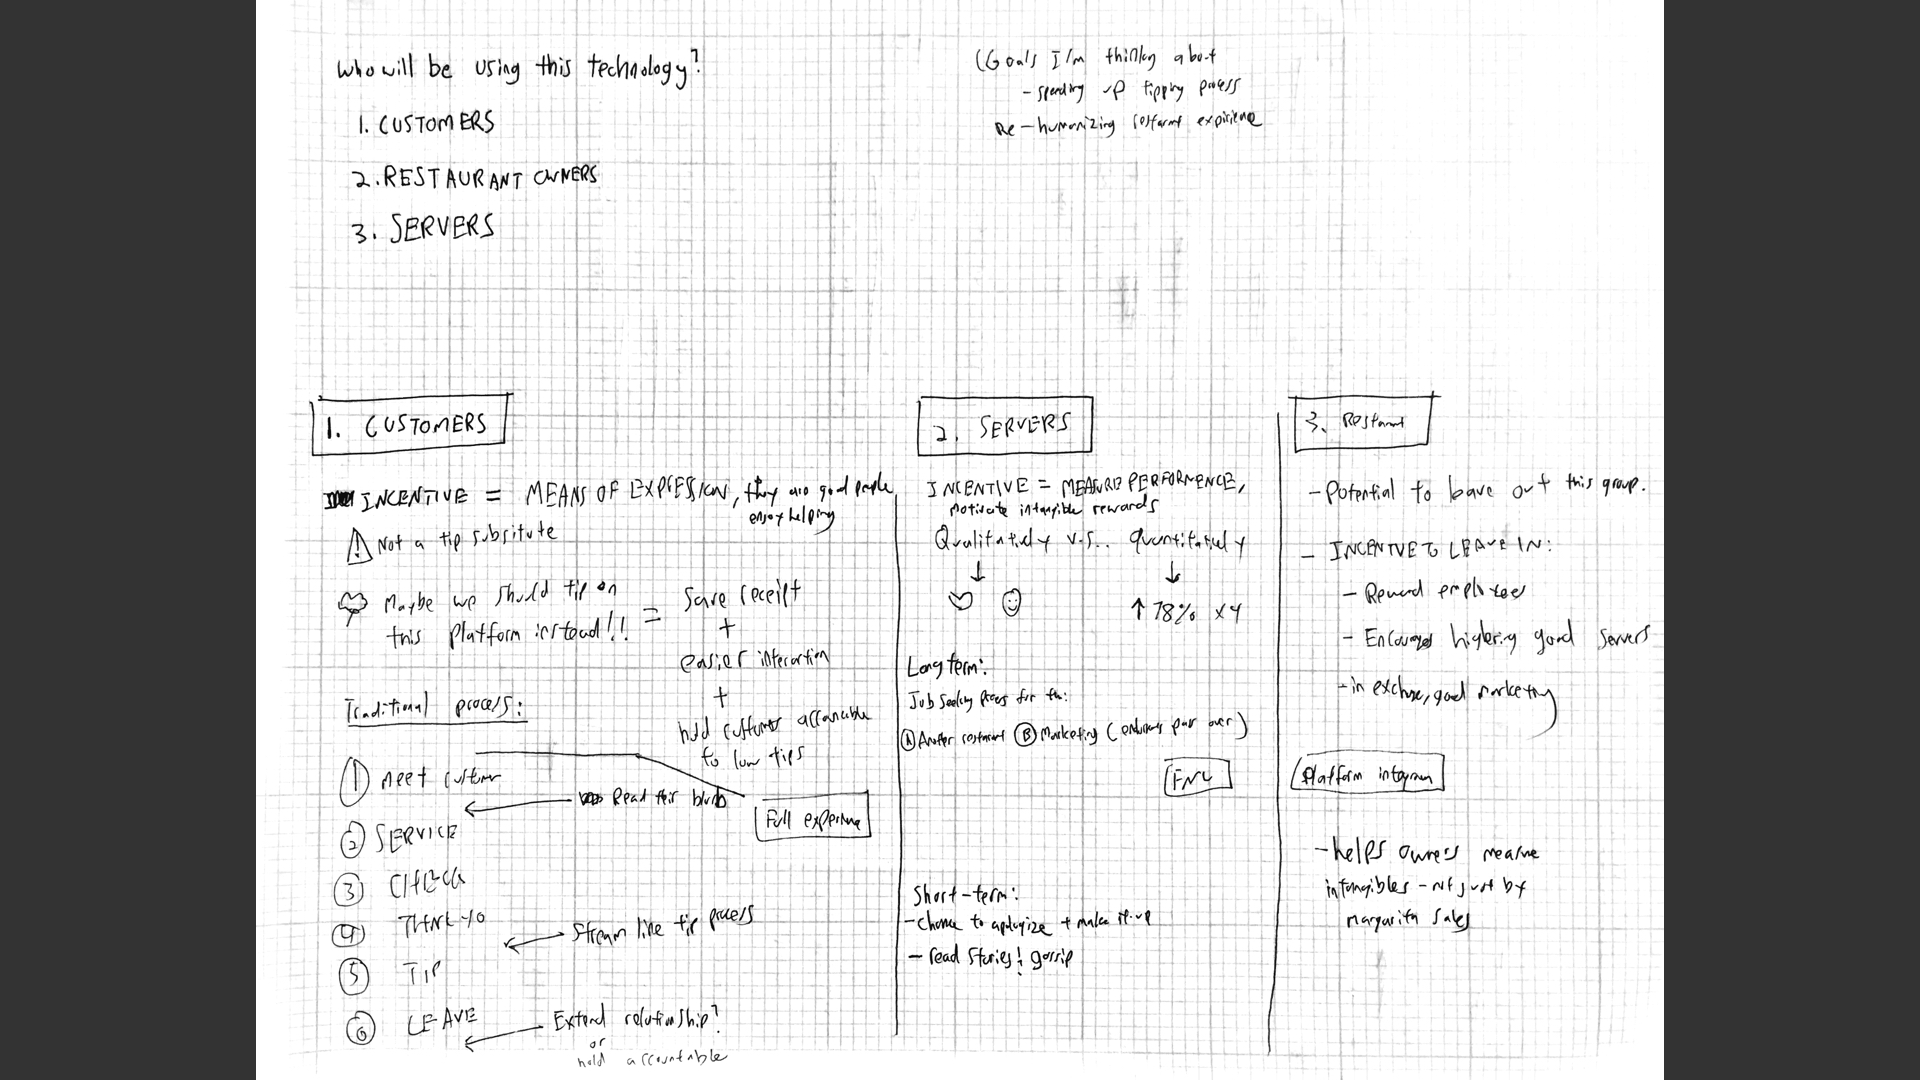 Who will be using this technology?
1. CUSTOMERS
2. RESTAURANT OWNERS
3. SERVERS
(Goals I'm thinking about
- speeding up tipping process
Re-humanizing
1. CUSTOMERS
INCENTIVE = MEANS OF EXPRESSION, they are good people
enjoy helping
Not a tip subsitute
Maybe we should tip on
this platform instead!! =
save receipt
+
easier interaction
+
hold customers
to low tips
Traditional process:
1 meet customer
Read their blurb
Full experience
2 SERVICE
3 CHECK
4
Stream line tip process
5 TIP
6 LEAVE
Extend relationship?
or
hold accountable
2. SERVERS
INCENTIVE = MEASURE PERFORMENCE,
motivate intangible rewards
Qualitatively v.s.. quantitatively
↓ ↓
↑ 78% x4
Long term:
Job seeking process for the:
A Another restaurant B Marketing
Short-term:
- chance to apologize + make it up
- read stories! gossip
3.
- Potential to leave out this group.
- INCENTIVE TO LEAVE IN:
- Reward employees
- good servers
- in good marketing
Platform
- helps owners measure
intangibles - not just by
margarita sales